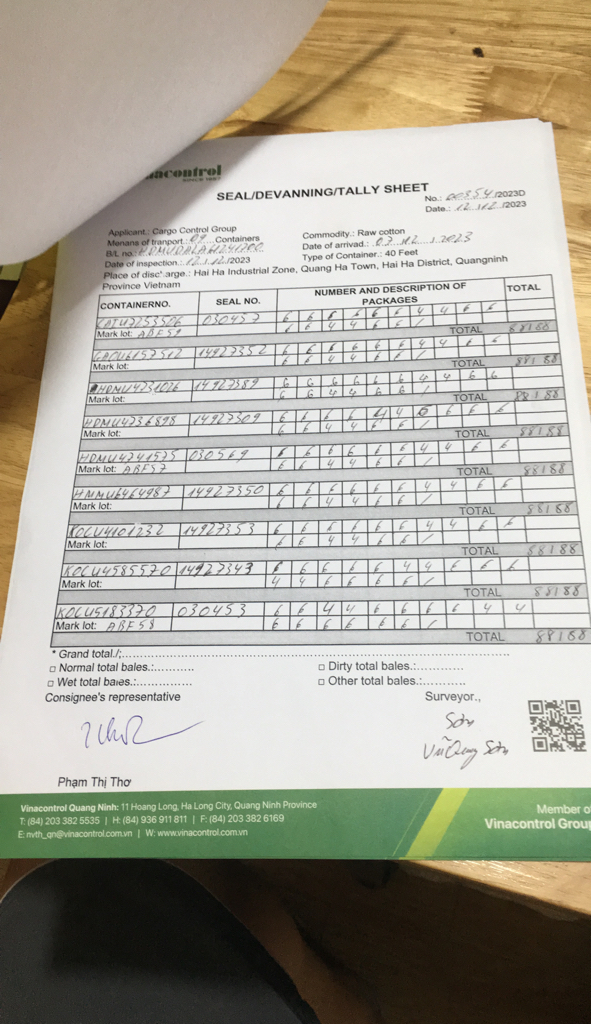 nacontrol
SINCE 1957
SEAL/DEVANNING/TALLY SHEET
No.: 00354/2023D
Date.: 12.12./2023
Applicant.: Cargo Control Group
Commodity.: Raw cotton
Menans of tranport.: 09 Containers
Date of arrivad.: 07.12./2023
B/L no.:
Type of Container.: 40 Feet
Date of inspection.: 12.12./2023
Place of discharge.: Hai Ha Industrial Zone, Quang Ha Town, Hai Ha District, Quangninh
Province Vietnam
CONTAINERNO. SEAL NO. NUMBER AND DESCRIPTION OF PACKAGES TOTAL
030457 6 6 6 6 6 6 4 4 6 6
Mark lot: ABF59 6 6 4 4 6 6 /
TOTAL 88188
14927352 6 6 6 6 6 6 4 4 6 6
Mark lot: 6 6 4 4 6 6 /
TOTAL 88188
HDMU4231026 14927389 6 6 6 6 6 6 4 4 6 6
Mark lot: 6 6 4 4 6 6 /
TOTAL 88188
HDMU4736898 14927309 6 6 6 6 4 4 6 6 6 6
Mark lot: 6 6 4 4 6 6 /
TOTAL 88188
HDMU4741575 030569 6 6 6 6 6 6 4 4 6 6
Mark lot: ABF57 6 6 4 4 6 6 /
TOTAL 88188
HMMU6464987 14927350 6 6 6 6 6 6 4 4 6 6
Mark lot: 6 6 4 4 6 6 /
TOTAL 88188
KOCU4101232 14927353 6 6 6 6 6 6 4 4 6 6
Mark lot: 6 6 4 4 6 6 /
TOTAL 88188
KOCU4585570 14927343 6 6 6 6 6 4 4 6 6 6
Mark lot: 4 4 6 6 6 6 /
TOTAL 88188
KOCU5183370 030453 6 6 4 4 6 6 6 6 4 4
Mark lot: ABF58 6 6 6 6 6 6 /
TOTAL 88188
* Grand total./:
□ Normal total bales.:
□ Dirty total bales.:
□ Wet total bales.:
□ Other total bales.:
Consignee's representative
Surveyor.,
Sơn
Vũ Quang Sơn
Phạm Thị Thơ
Vinacontrol Quang Ninh: 11 Hoang Long, Ha Long City, Quang Ninh Province
T: (84) 203 382 5535 | H: (84) 936 911 811 | F: (84) 203 382 6169
E: nvth_qn@vinacontrol.com.vn | W: www.vinacontrol.com.vn
Member of
Vinacontrol Group